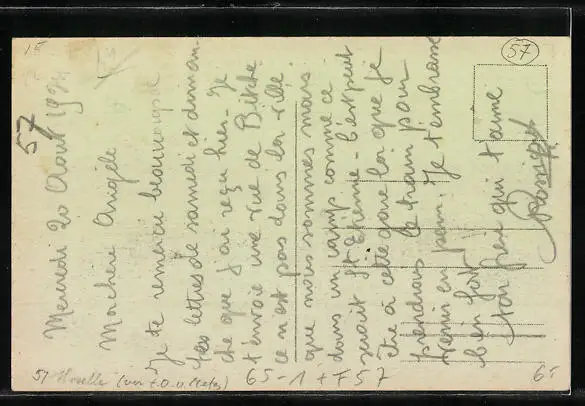 Mercredi 20 Août 19
Ma chère Angèle
Je te remercie beaucoup de
tes lettres de samedi et diman
che que j'ai reçu hier. Je
t'envoie une vue de Bitche
ce n'est pas dans la ville
que nous sommes mais
dans un camp comme ce
serait St Etienne. C'est peut
être à cette gare là que je
prendrais le train pour
venir en perm. Je t'embrasse
bien fort
ton frère qui t'aime
57
57
57 Moselle (voir
65-1 + F57
65